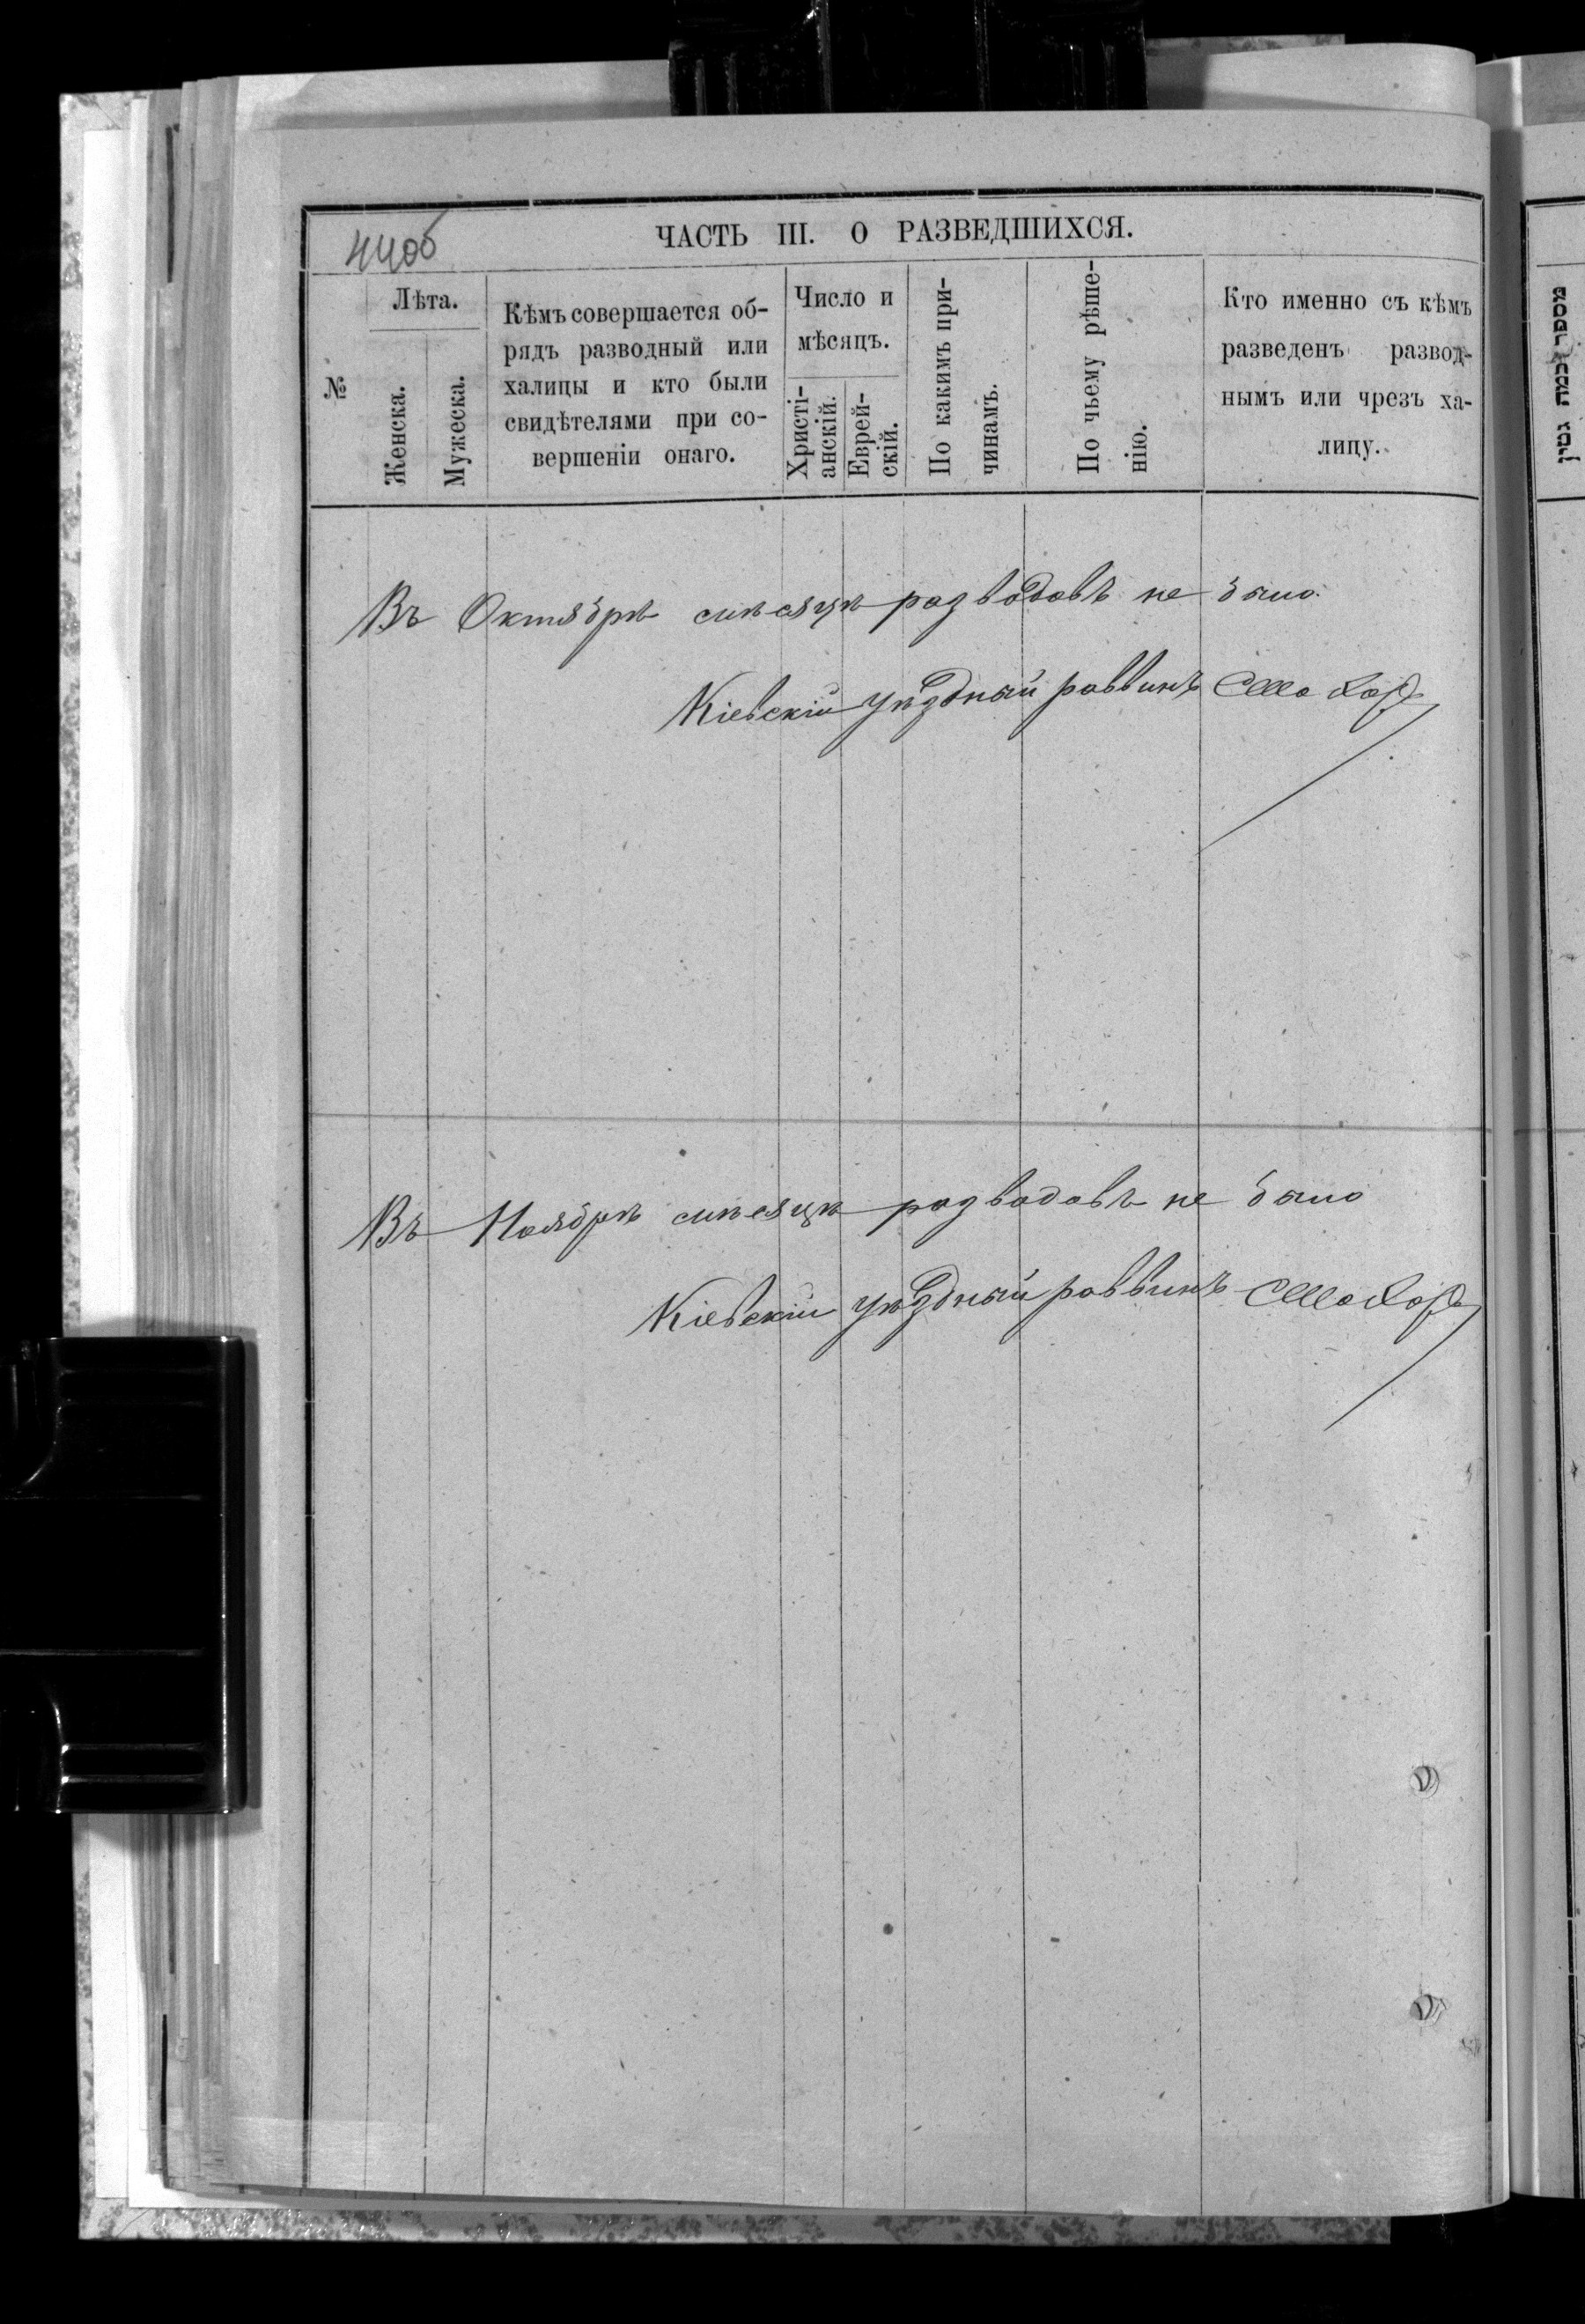 44об
ЧАСТЬ III. О РАЗВЕДШИХСЯ.
№
Лѣта.
Женска.
Мужеска.
Кѣмъ совершается об-
рядъ разводный или
халицы и кто были
свидѣтелями при со-
вершеніи онаго.
Число и
мѣсяцъ.
Христі-
анскій.
Еврей-
скій.
По какимъ при-
чинамъ.
По чьему рѣше-
нію.
Кто именно съ кѣмъ
разведенъ развод-
нымъ или чрезъ ха-
лицу.
Въ Октябрѣ мѣсяцѣ разводовъ не было.
Кіевскій уѣздный раввинъ
Въ Ноябрѣ мѣсяцѣ разводовъ не было
Кіевскій уѣздный раввинъ
מספר כמה גטין